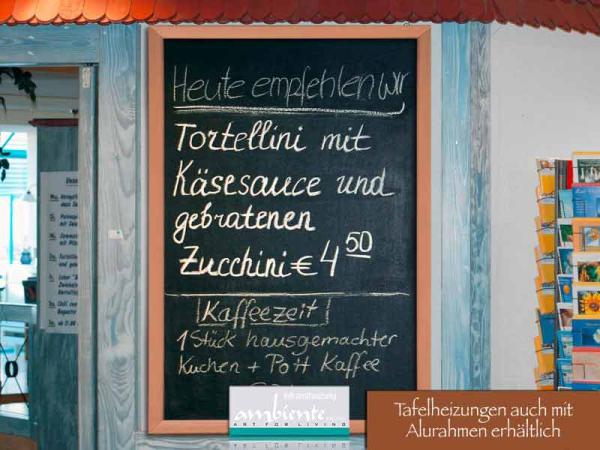 Heute empfehlen wir
Tortellini mit
Käsesauce und
gebratenen
Zucchini € 4 50
Kaffeezeit!
1 Stück hausgemachter
Kuchen + Pott Kaffee
infrarotheizung
ambiente
ART FOR LIVING
Tafelheizungen auch mit
Alurahmen erhältlich